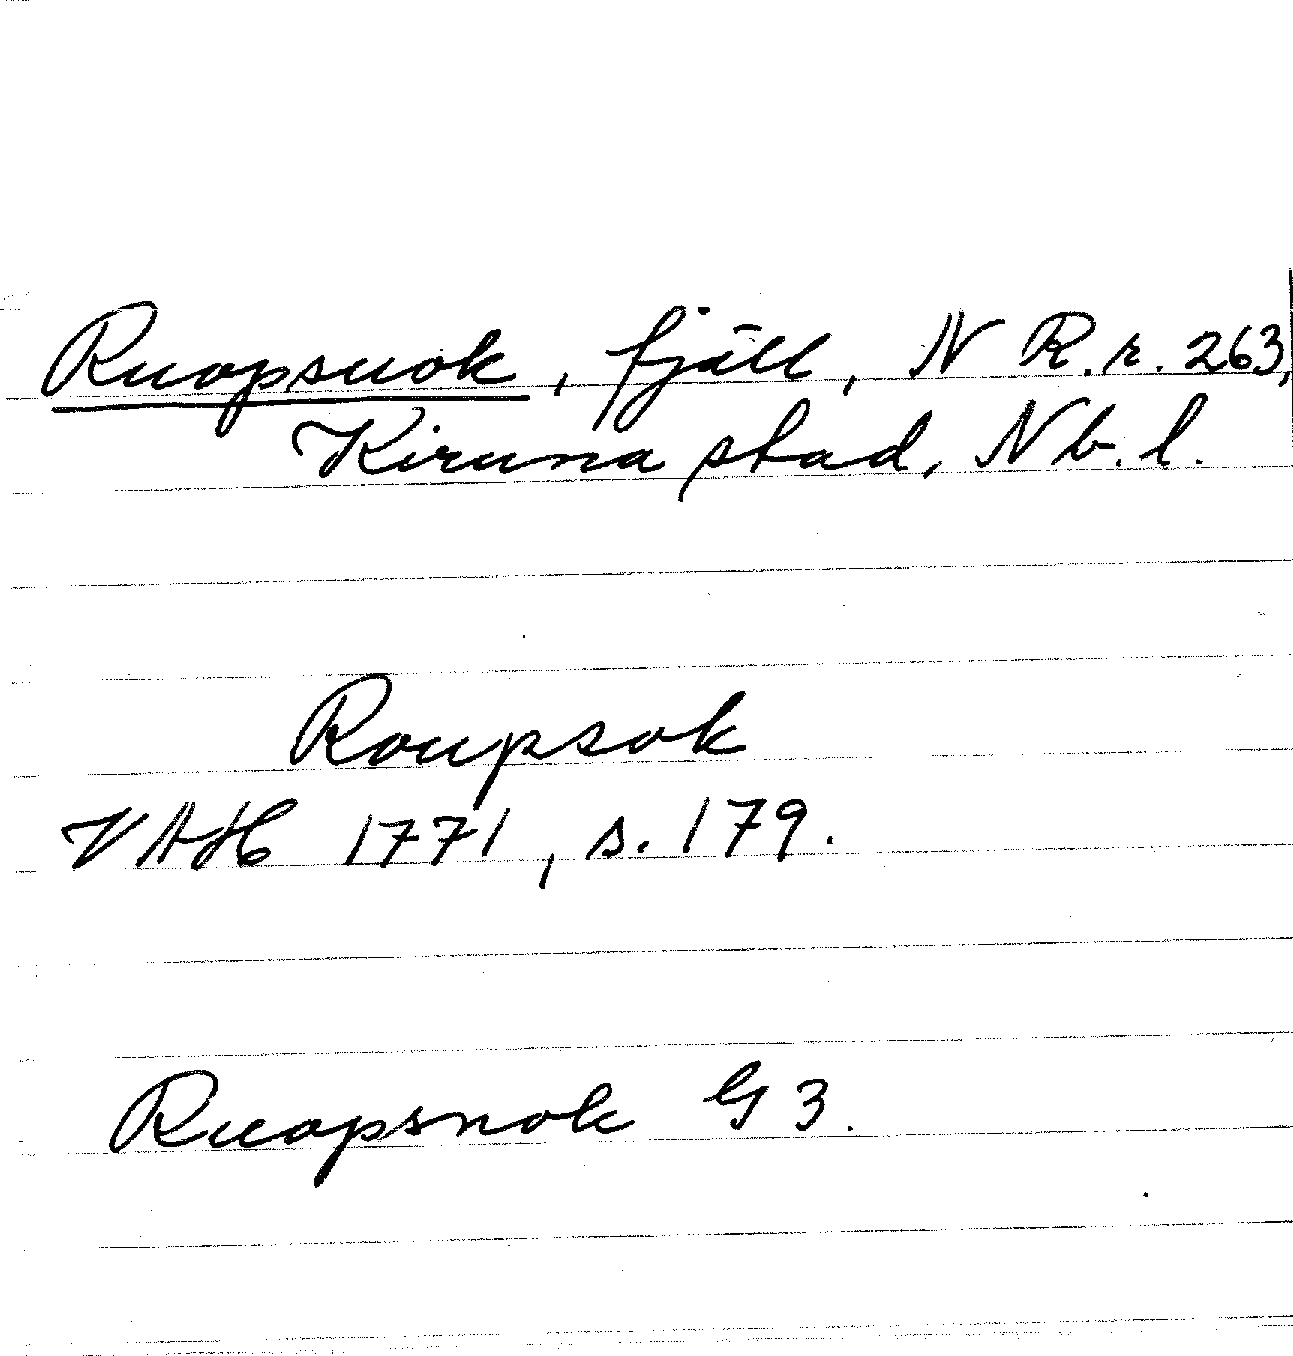 Ruopsuok, fjäll, N R.r. 263,
Kiruna stad, Nb. l.
Roupsok
VAH 1771, s. 179.
Ruopsnok G3.